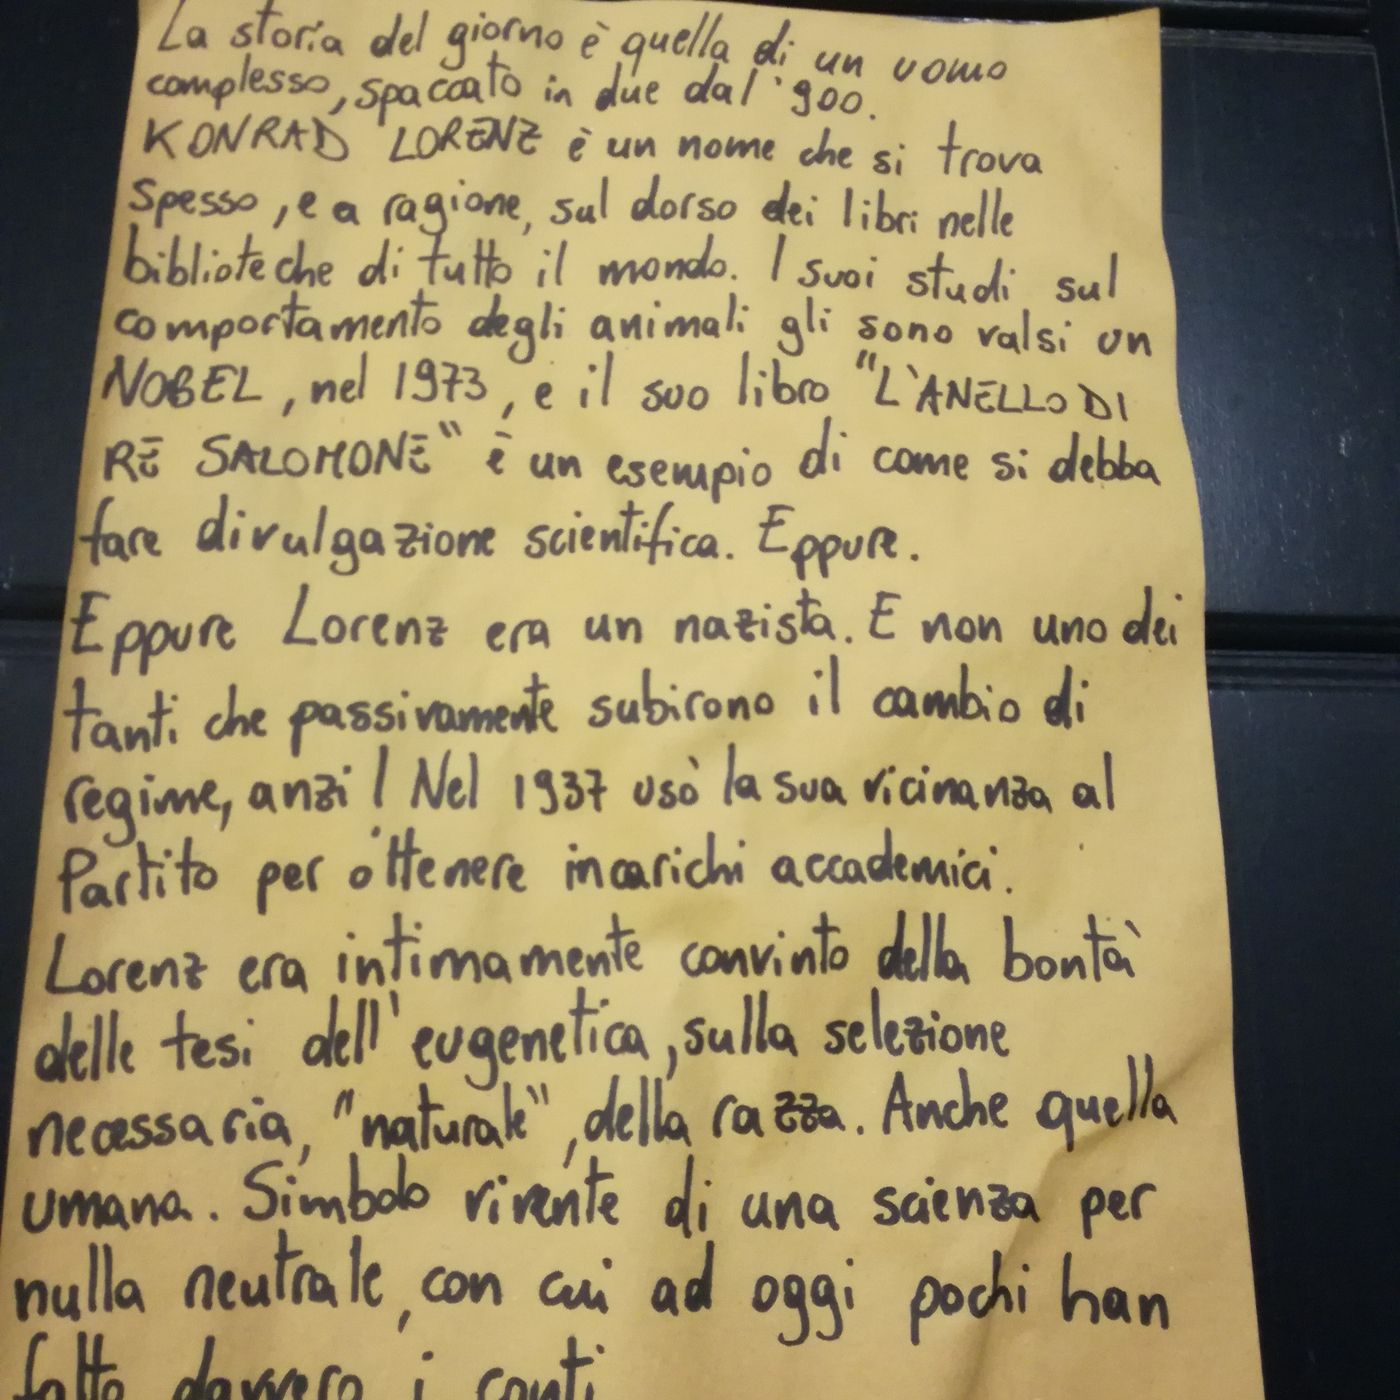 La storia del giorno è quella di un uomo
complesso, spaccato in due dal '900.
KONRAD LORENZ è un nome che si trova
spesso, e a ragione, sul dorso dei libri nelle
biblioteche di tutto il mondo. I suoi studi sul
comportamento degli animali gli sono valsi un
NOBEL, nel 1973, e il suo libro "L'ANELLO DI
RE SALOMONE" è un esempio di come si debba
fare divulgazione scientifica. Eppure.
Eppure Lorenz era un nazista. E non uno dei
tanti che passivamente subirono il cambio di
regime, anzi! Nel 1937 usò la sua vicinanza al
Partito per ottenere incarichi accademici.
Lorenz era intimamente convinto della bontà
delle tesi dell'eugenetica, sulla selezione
necessaria, "naturale", della razza. Anche quella
umana. Simbolo vivente di una scienza per
nulla neutrale, con cui ad oggi pochi han
fatto davvero i conti